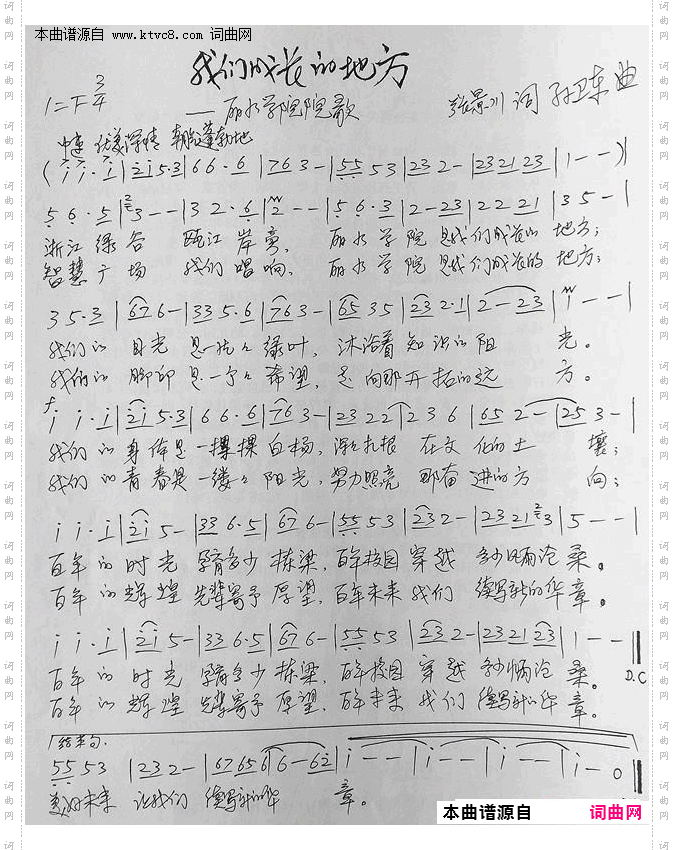 本曲谱源自 www.ktvc8.com 词曲网
我们成长的地方
1=F 3/4
——丽水学院院歌
张景川 词 孙卫东 曲
中速 优美深情 朝气蓬勃地
( i i · i | 2i 5·3 | 6 6 · 6 | 76 3 - | 55 5 3 | 23 2 - | 23 21 23 | 1 - - )
5 6 · 5 | 3 - - | 3 2 · 6 | 2 - - | 5 6 · 3 | 2 - 23 | 22 21 | 3 5 - |
浙江 绿谷 瓯江 岸旁, 丽水 学院 是我们成长的 地方;
智慧 广场 我们 唱响, 丽水 学院 是我们成长的 地方;
3 5 · 3 | 67 6 - | 33 5·6 | 76 3 - | 65 3 5 | 23 2·1 | 2 - 23 | 1 - - |
我们的 目光 是一片片 绿叶, 沐浴着 知识的阳 光。
我们的 脚印 是一个个 希望, 走向那开拓的远 方。
f
i i · i | 2i 5·3 | 6 6 · 6 | 76 3 - | 23 22 | 2 3 6 | 65 2 - | 25 3 - |
我们 的 身体是 一棵棵 白杨, 深深扎根 在文化的土 壤;
我们 的 青春是 一缕缕 阳光, 努力照亮 那奋进的方 向;
i i · i | 2i 5 - | 33 6·5 | 67 6 - | 55 5 3 | 23 2 - | 23 21 3 | 5 - - |
百年 的 时光 孕育多少 栋梁, 百年校园 穿越 多少风雨沧 桑。
百年 的 辉煌 先辈寄予 厚望, 百年未来 我们 续写新的华 章。
i i · i | 2i 5 - | 33 6·5 | 67 6 - | 55 5 3 | 23 2 - | 23 21 23 | 1 - - ‖
D.C
百年 的 时光 孕育多少 栋梁, 百年校园 穿越 多少风雨沧 桑。
百年 的 辉煌 先辈寄予 厚望, 百年未来 我们 续写新的华 章。
结束句.
55 5 3 | 23 2 - | 67 65 6 | 6 - 62 | i - - | i - - | i - - | i - 0 ‖
美好未来 让我们 续写新的华 章。
本曲谱源自 词曲网